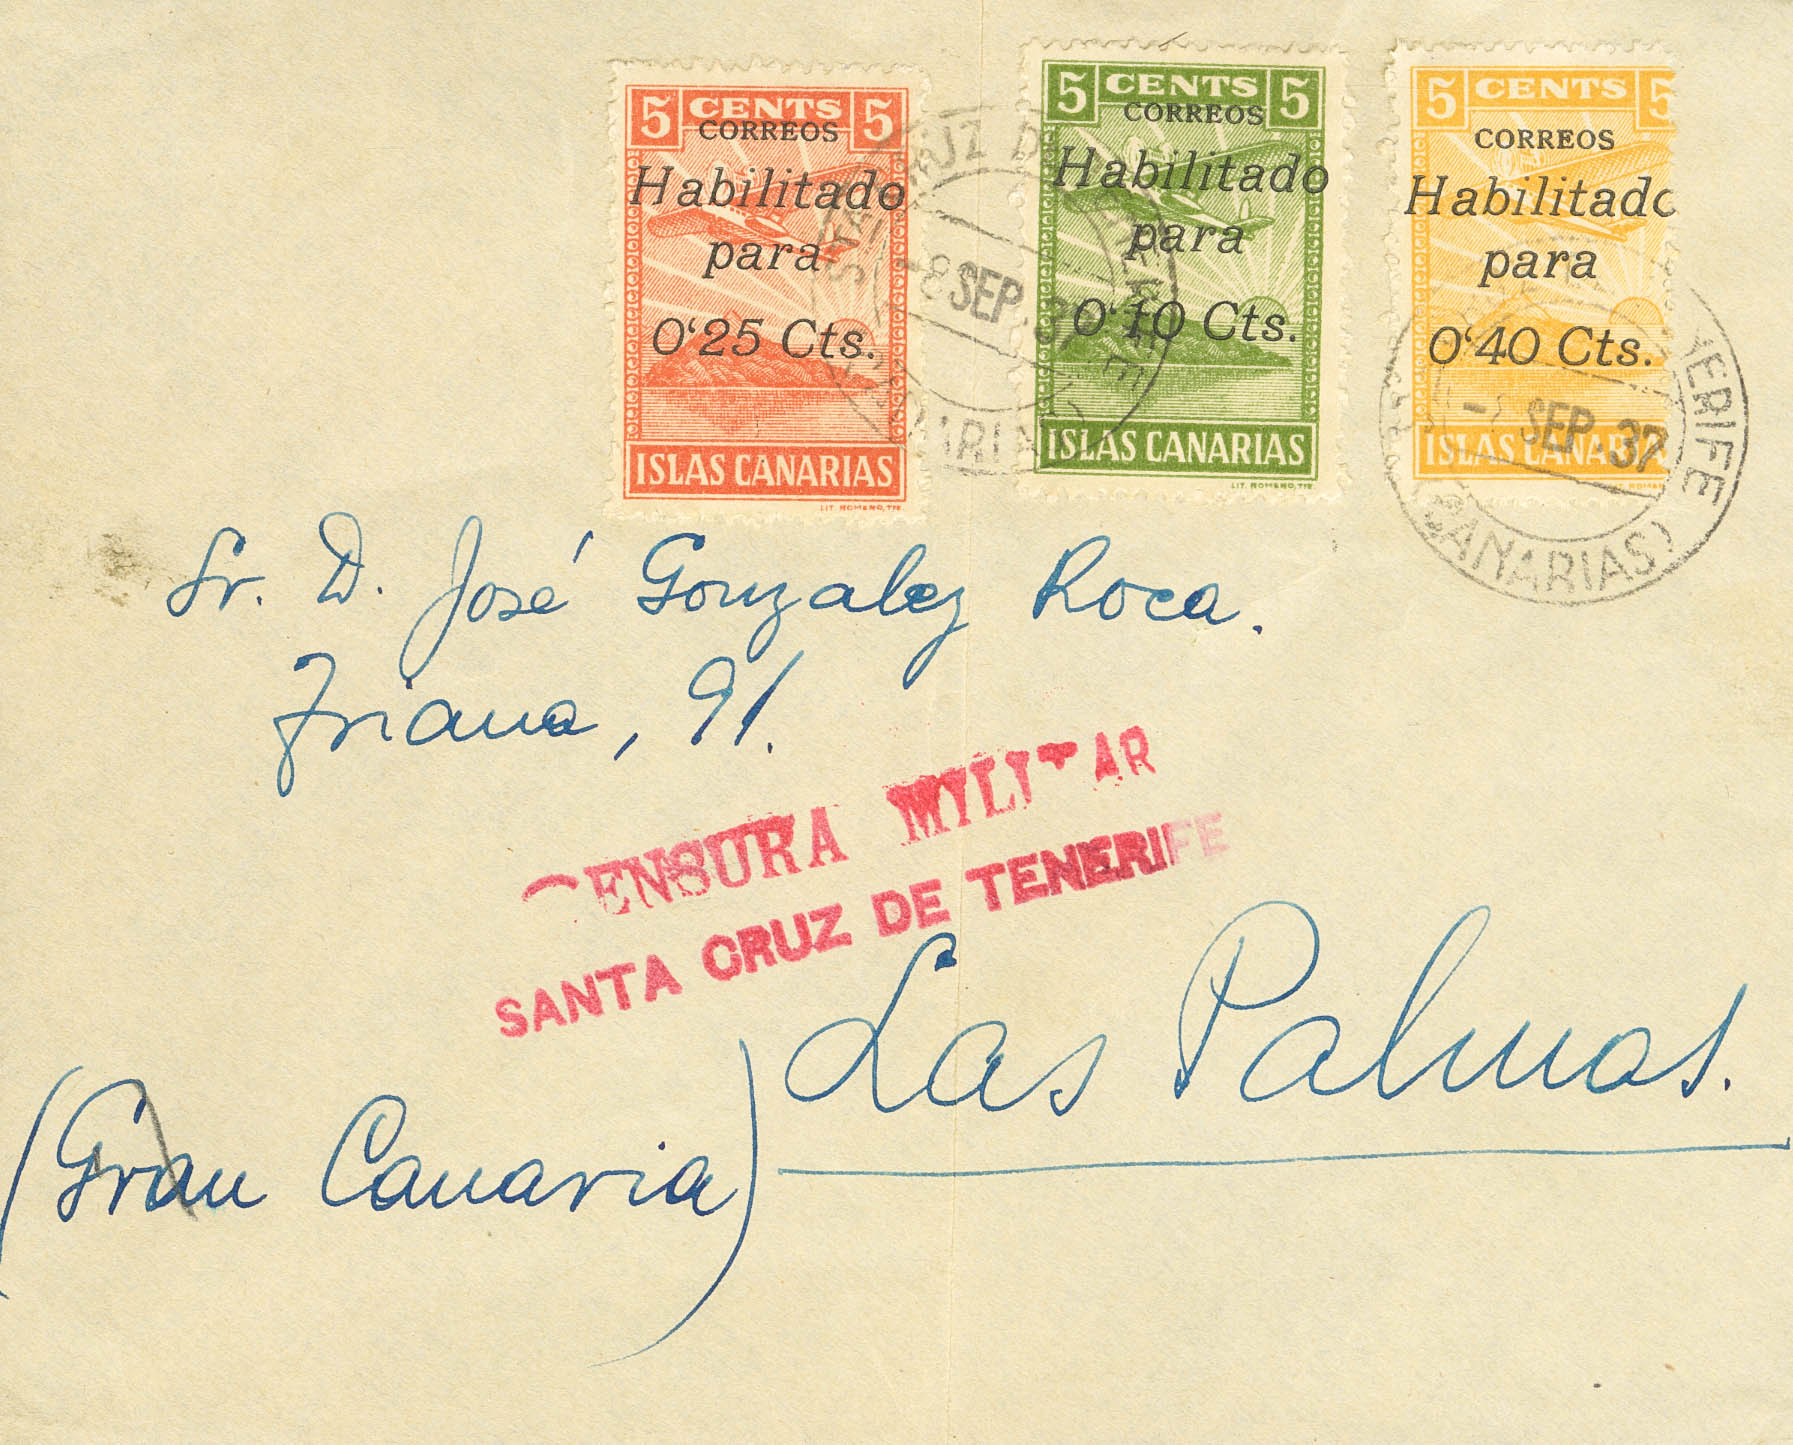 5 CENTS 5
CORREOS
Habilitado
para
0'25 Cts.
ISLAS CANARIAS
LIT. ROMERO, TFE.
5 CENTS 5
CORREOS
Habilitado
para
0'10 Cts.
ISLAS CANARIAS
LIT. ROMERO, TFE.
5 CENTS 5
CORREOS
Habilitado
para
0'40 Cts.
ISLAS CANARIAS
LIT. ROMER
-8 SEP. 37
SEP. 37
ERIFE
(CANARIAS)
Sr. D. José Gonzalez Roca.
Triana, 91.
CENSURA MILITAR
SANTA CRUZ DE TENERIFE
Las Palmas.
(Gran Canaria)